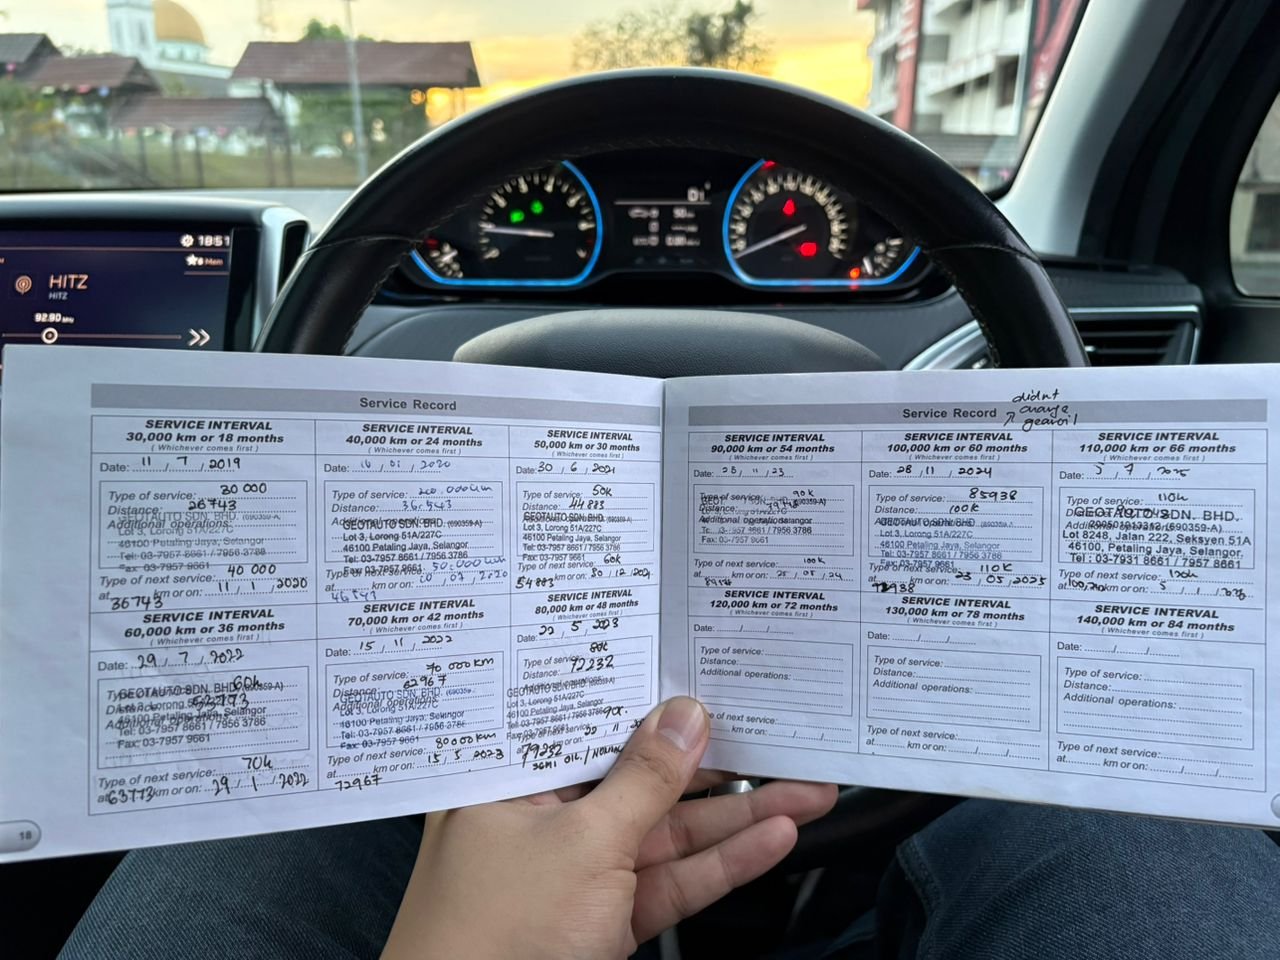 1851
Mem
HITZ
HITZ
92.90 MHz
Service Record
SERVICE INTERVAL
30,000 km or 18 months
( Whichever comes first )
Date: 11 / 7 / 2019
Type of service: 30 000
Distance: 26743
Additional operations:
GEOTAUTO SDN. BHD. (690359-A)
Lot 3, Lorong 51A/227C
46100 Petaling Jaya, Selangor
Tel: 03-7957 8661 / 7956 3786
Fax: 03-7957 9661
Type of next service: 40 000
at 36743 km or on: 11 / 1 / 2020
SERVICE INTERVAL
40,000 km or 24 months
( Whichever comes first )
Date: 2020
Type of service:
Distance:
GEOTAUTO SDN. BHD. (690359-A)
Lot 3, Lorong 51A/227C
46100 Petaling Jaya, Selangor
Tel: 03-7957 8661 / 7956 3786
Fax: 03-7957 9661
Type of next service: 50.000 km
at km or on:
SERVICE INTERVAL
50,000 km or 30 months
( Whichever comes first )
Date: 30 / 6 / 2021
Type of service: 50k
Distance: 44883
GEOTAUTO SDN. BHD. (690359-A)
Lot 3, Lorong 51A/227C
46100 Petaling Jaya, Selangor
Tel: 03-7957 8661 / 7956 3786
Fax: 03-7957 9661
Type of next service: 60k
at 54883 km or on: 30 / 12 / 2021
SERVICE INTERVAL
60,000 km or 36 months
( Whichever comes first )
Date: 29 / 7 / 2022
60k
GEOTAUTO SDN. BHD. (690359-A)
Lot 3, Lorong 51A/227C
46100 Petaling Jaya, Selangor
Tel: 03-7957 8661 / 7956 3786
Fax: 03-7957 9661
Type of next service: 70k
at 63773 km or on: 29 / 1 / 2022
SERVICE INTERVAL
70,000 km or 42 months
( Whichever comes first )
Date: 15 / 11 / 2022
Type of service: 70 000km
Distance: 62967
Additional operations:
GEOTAUTO SDN. BHD.
Lot 3, Lorong 51A/227C
46100 Petaling Jaya, Selangor
Tel: 03-7957 8661 / 7956 3786
Fax: 03-7957 9661
Type of next service: 80000km
at 72967 km or on: 15 / 5 / 2023
SERVICE INTERVAL
80,000 km or 48 months
( Whichever comes first )
Date: 22 / 5 / 2023
Type of service: 80k
Distance: 72232
GEOTAUTO SDN. BHD. (690359-A)
Lot 3, Lorong 51A/227C
46100 Petaling Jaya, Selangor
Tel: 03-7957 8661 / 7956 3786
Fax: 03-7957 9661
Type of next service: 90k
at 79232 km or on: 22 / 11
SEMI OIL /
18
didnt
change
gearoil
Service Record
SERVICE INTERVAL
90,000 km or 54 months
( Whichever comes first )
Date: 25 / 11 / 23
Type of service: 90k
Lot 3, Lorong 51A/227C
Fax: 03-7957 9661
Type of next service: 100k
at km or on: 25 / 05 / 24
SERVICE INTERVAL
100,000 km or 60 months
( Whichever comes first )
Date: 28 / 11 / 2024
Type of service: 85938
Distance: 100k
GEOTAUTO SDN. BHD.
Lot 3, Lorong 51A/227C
46100 Petaling Jaya, Selangor
Type of next service: 110K
at km or on: 23 / 05 / 2025
SERVICE INTERVAL
110,000 km or 66 months
( Whichever comes first )
Date: 5 / 7 / 2025
Type of service: 110k
GEOTAUTO SDN. BHD.
(690359-A)
Lot 8248, Jalan 222, Seksyen 51A
46100, Petaling Jaya, Selangor.
Tel: 03-7931 8661 / 7957 8661
Type of next service: 120k
at km or on: 5 / 1 / 2026
SERVICE INTERVAL
120,000 km or 72 months
( Whichever comes first )
Date: / /
Type of service:
Distance:
Additional operations:
Type of next service:
at km or on: / /
SERVICE INTERVAL
130,000 km or 78 months
( Whichever comes first )
Date: / /
Type of service:
Distance:
Additional operations:
Type of next service:
at km or on: / /
SERVICE INTERVAL
140,000 km or 84 months
( Whichever comes first )
Date: / /
Type of service:
Distance:
Additional operations:
Type of next service:
at km or on: / /